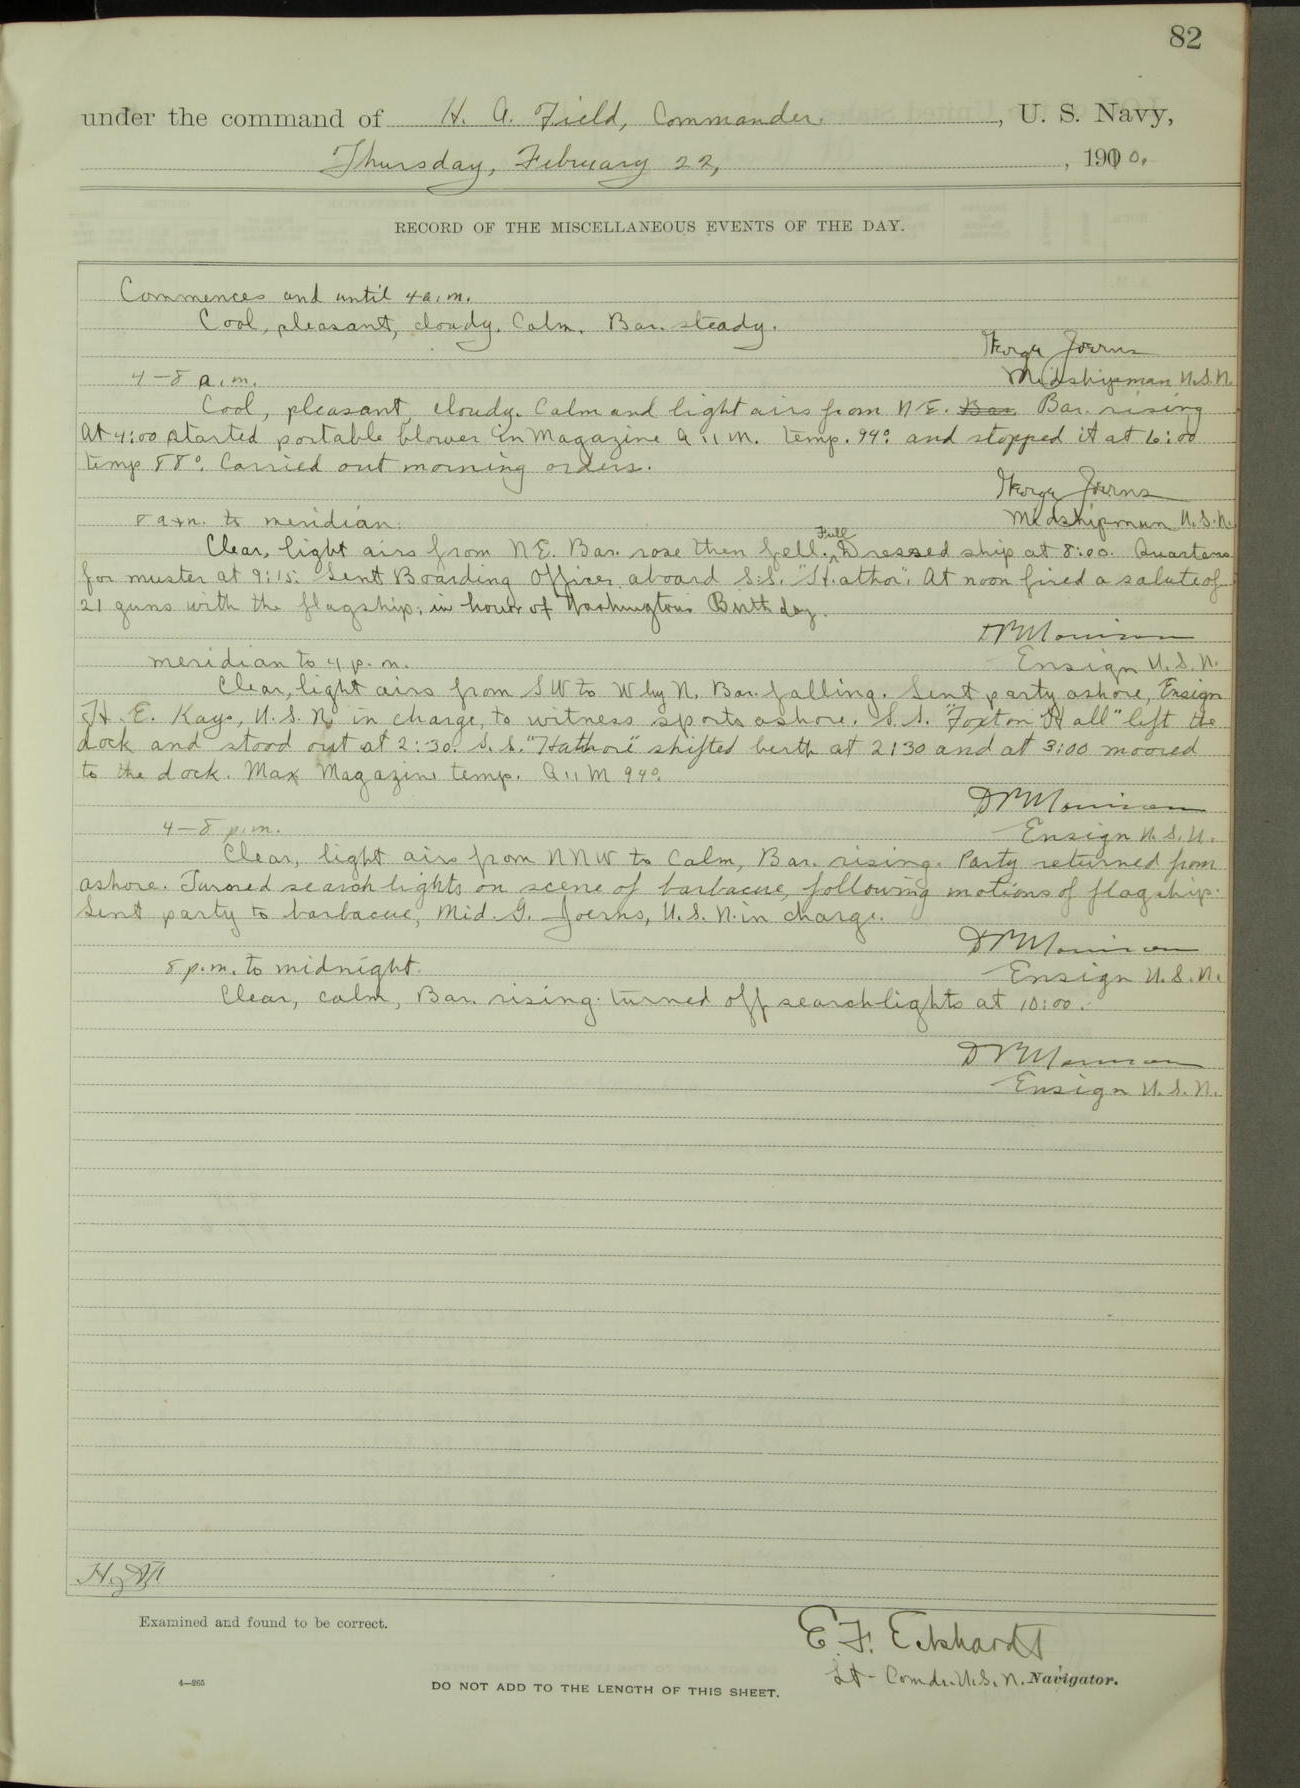 82
under the command of H. A. Field, Commander, U. S. Navy,
Thursday, February 22, 1900.
RECORD OF THE MISCELLANEOUS EVENTS OF THE DAY.
Commences and until 4 a.m.
Cool, pleasant, cloudy. Calm. Bar. steady.
George Joerns
4–8 a.m. Midshipman U.S.N.
Cool, pleasant, cloudy. Calm and light airs from N E. Bar. Bar. rising
At 4:00 started portable blower in Magazine A 11 M. temp. 94° and stopped it at 6:00
temp 88°. Carried out morning orders.
George Joerns
8 a.m. to meridian. Midshipman U.S.N.
Clear, light airs from N E. Bar. rose then fell. Full Dressed ship at 8:00. Quarters
for muster at 9:15. Sent Boarding Officer aboard S.S. "Hathor". At noon fired a salute of
21 guns with the flagship, in honor of Washingtons Birthday.
meridian to 4 p.m. Ensign U.S.N.
Clear, light airs from S W to W by N. Bar. falling. Sent party ashore, Ensign
H. E. Kays, U.S.N. in charge, to witness sports ashore. S.S. "Foxton Hall" left the
dock and stood out at 2:30. S.S. "Hathore" shifted berth at 2:30 and at 3:00 moored
to the dock. Max Magazine temp. A 11 M 94°.
4–8 p.m. Ensign U.S.N.
Clear, light airs from N N W to Calm, Bar. rising. Party returned from
ashore. Turned search lights on scene of barbacue, following motions of flagship.
Sent party to barbacue, Mid. G. Joerns, U.S.N. in charge.
8 p.m. to midnight. Ensign U.S.N.
Clear, calm, Bar. rising. turned off searchlights at 10:00.
Ensign U.S.N.
Examined and found to be correct.
E. F. Eckhardt
Lt-Comdr. U.S.N. Navigator.
4—265
DO NOT ADD TO THE LENGTH OF THIS SHEET.